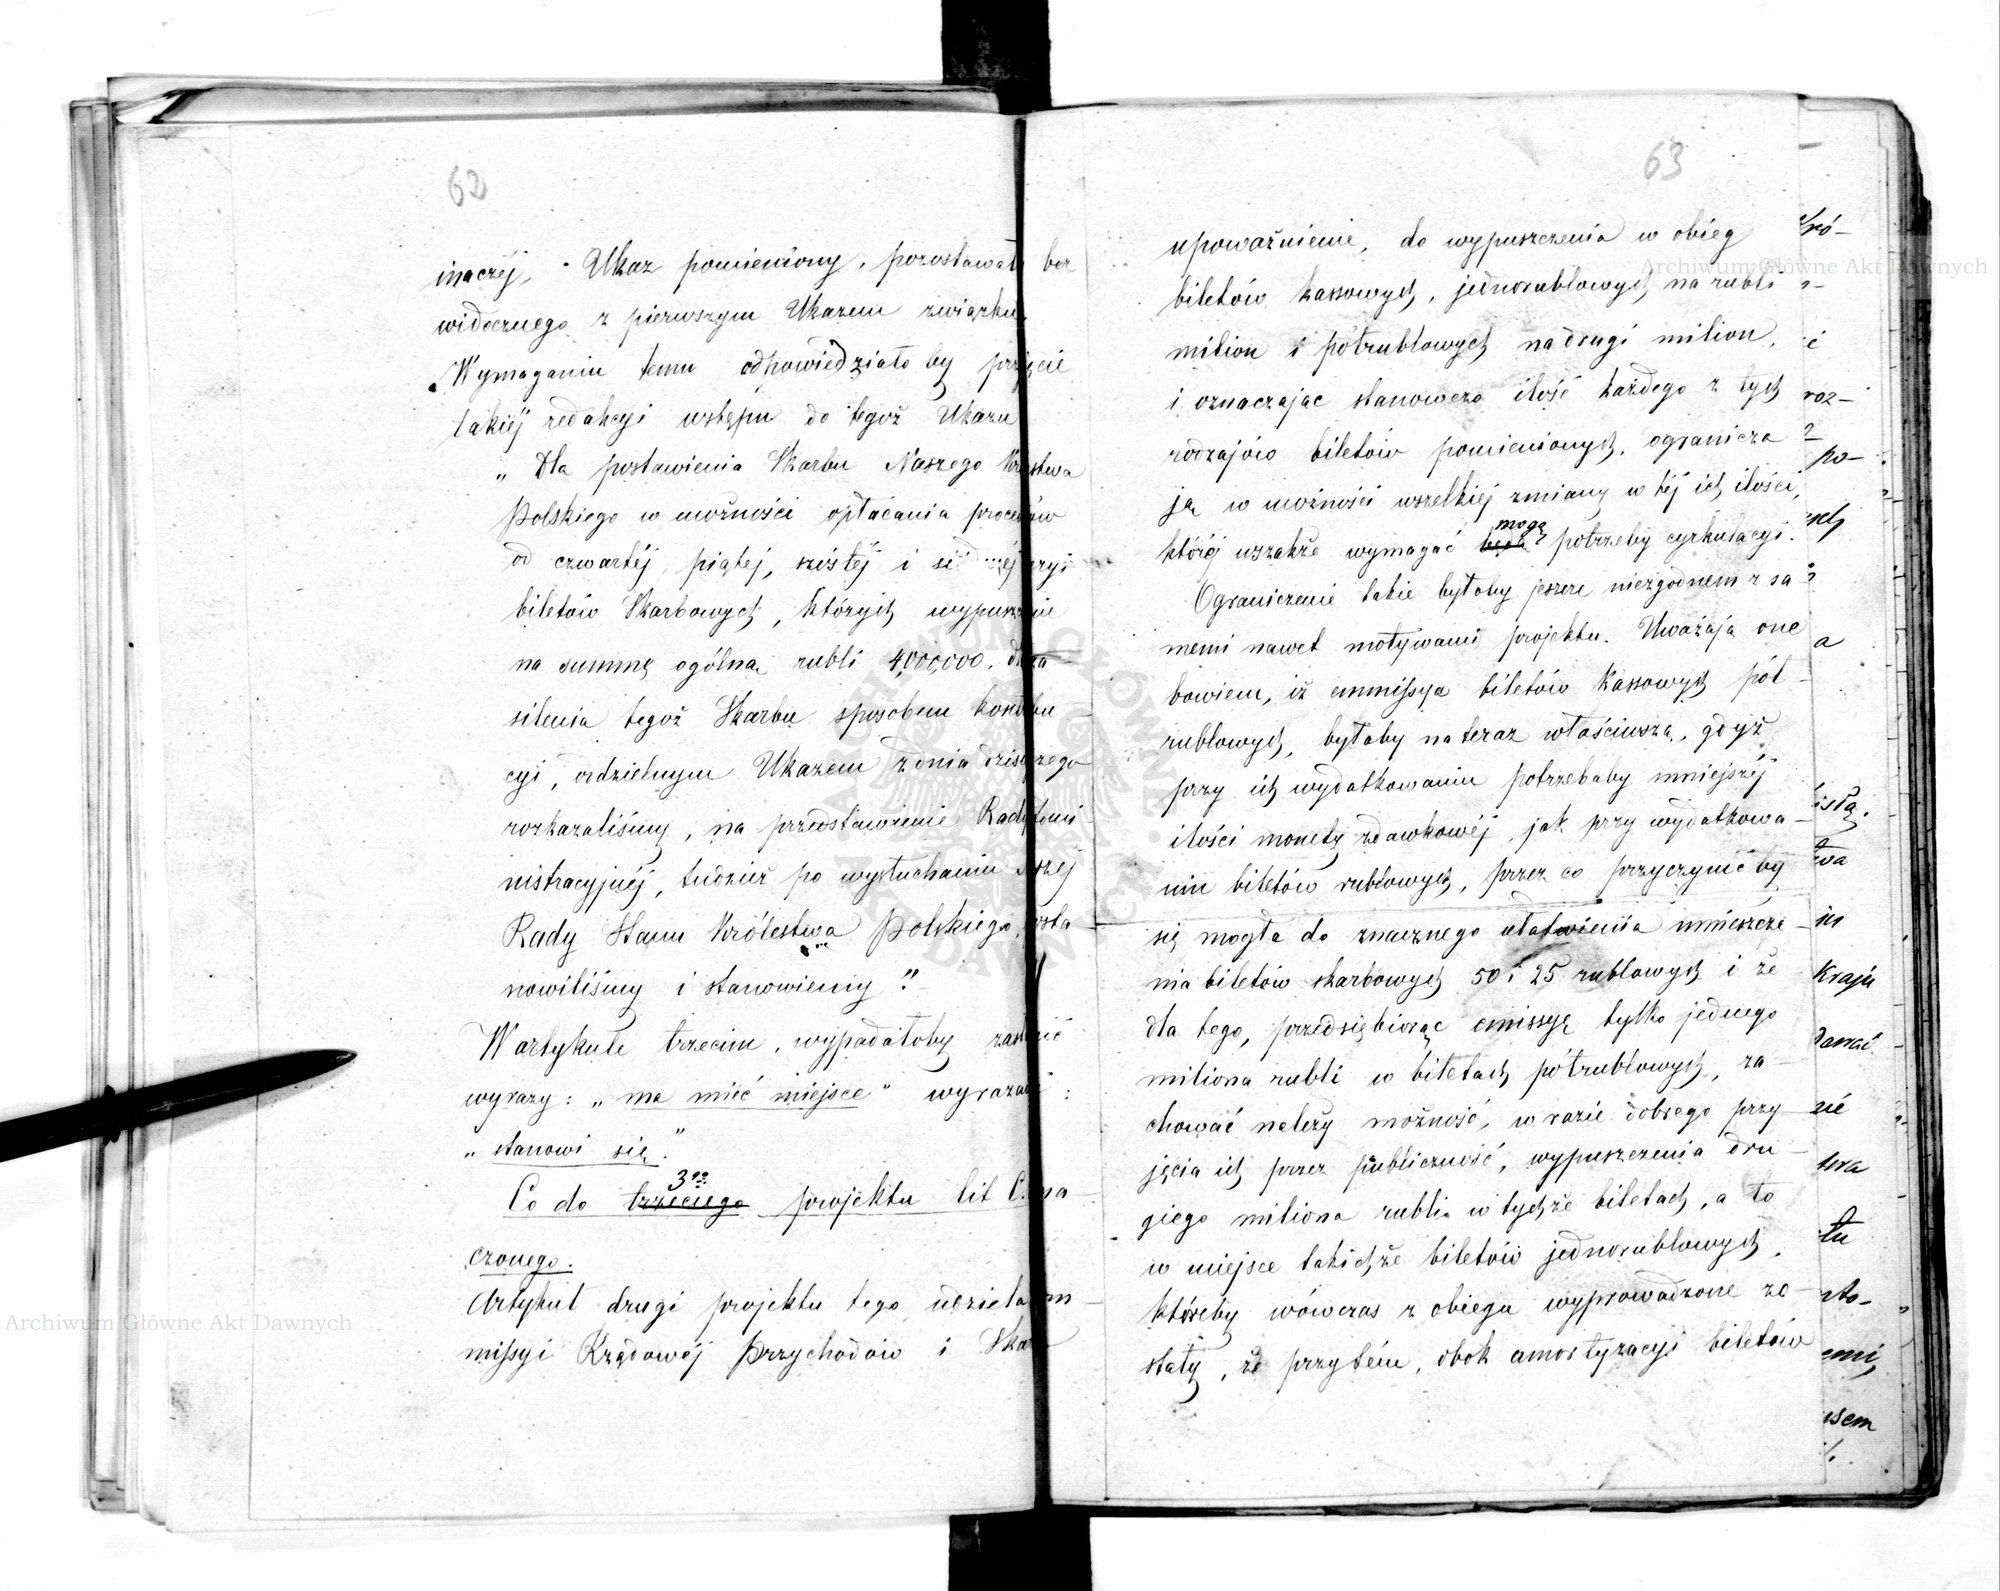 62
inaczéj, Ukaz pomieniony, pozostawał bez
widocznego z pierwszym Ukazem związku.
Wymaganiu temu odpowiedziało by przyjęcie
takiéj redakcyi wstępu do tegoż Ukazu
„Dla postawienia Skarbu Naszego Królestwa
Polskiego w możności opłacania procentów
od czwartéj, piątej, szóstéj i siódméj seryi
biletów Skarbowych, których wypuszczenie
na summę ogólną rubli 4,000,000. dla za
silenia tegoż Skarbu sposobem kontribu
cyi, oddzielnym Ukazem z dnia dzisiejszego
rozkazaliśmy, na przedstawienie Rady Admi
nistracyjnéj, tudzież po wysłuchaniu Naszéj
Rady Stanu Królestwa Polskiego, posta
nowiliśmy i stanowiemy".
W artykule trzecim, wypadałoby zamienić
wyrazy: „ma mieć miejsce" wyrazami:
„stanowi się."
Co do trzeciego 3go projektu lit C. ozna
czonego.
Artykuł drugi projektu tego udziela Kom
missyi Rządowéj Przychodów i Skarbu
63
upoważnienie, do wypuszczenia w obieg
biletów kassowych, jednorublowych na rubli
milion i półrublowych na drugi milion,
i oznaczając stanowczo ilość każdego z tych
rodzajów biletów pomienionych, ogranicza
ją w możności wszelkiej zmiany w téj ich ilości,
któréj wszakże wymagać będą mogą potrzeby cyrkulacyi.
Ograniczenie takie byłoby jeszcze niezgodnem z sa
memi nawet motywami projektu. Uważają one
bowiem, iż emmissya biletów kassowych pół
rublowych, byłaby na teraz właściwszą, gdyż
przy ich wydatkowaniu potrzebaby mniejszéj
ilości monety zdawkowéj, jak przy wydatkowa-
niu biletów rublowych, przez co przyczynić by
się mogła do znacznego ułatwienia umieszcze-
nia biletów skarbowych 50 i 25 rublowych i że
dla tego, przedsiębiorąc emissyę tylko jednego
miliona rubli w biletach półrublowych, za-
chować należy możność, w razie dobrego przy-
jęcia ich przez publiczność, wypuszczenia dru-
giego miliona rubli w tychże biletach, a to
w miejsce takichże biletów jednorublowych,
któreby wówczas z obiegu wyprowadzone zo-
stały, że przytém, obok amortyzacyi biletów
Kraju
Archiwum Główne Akt Dawnych
Archiwum Główne Akt Dawnych